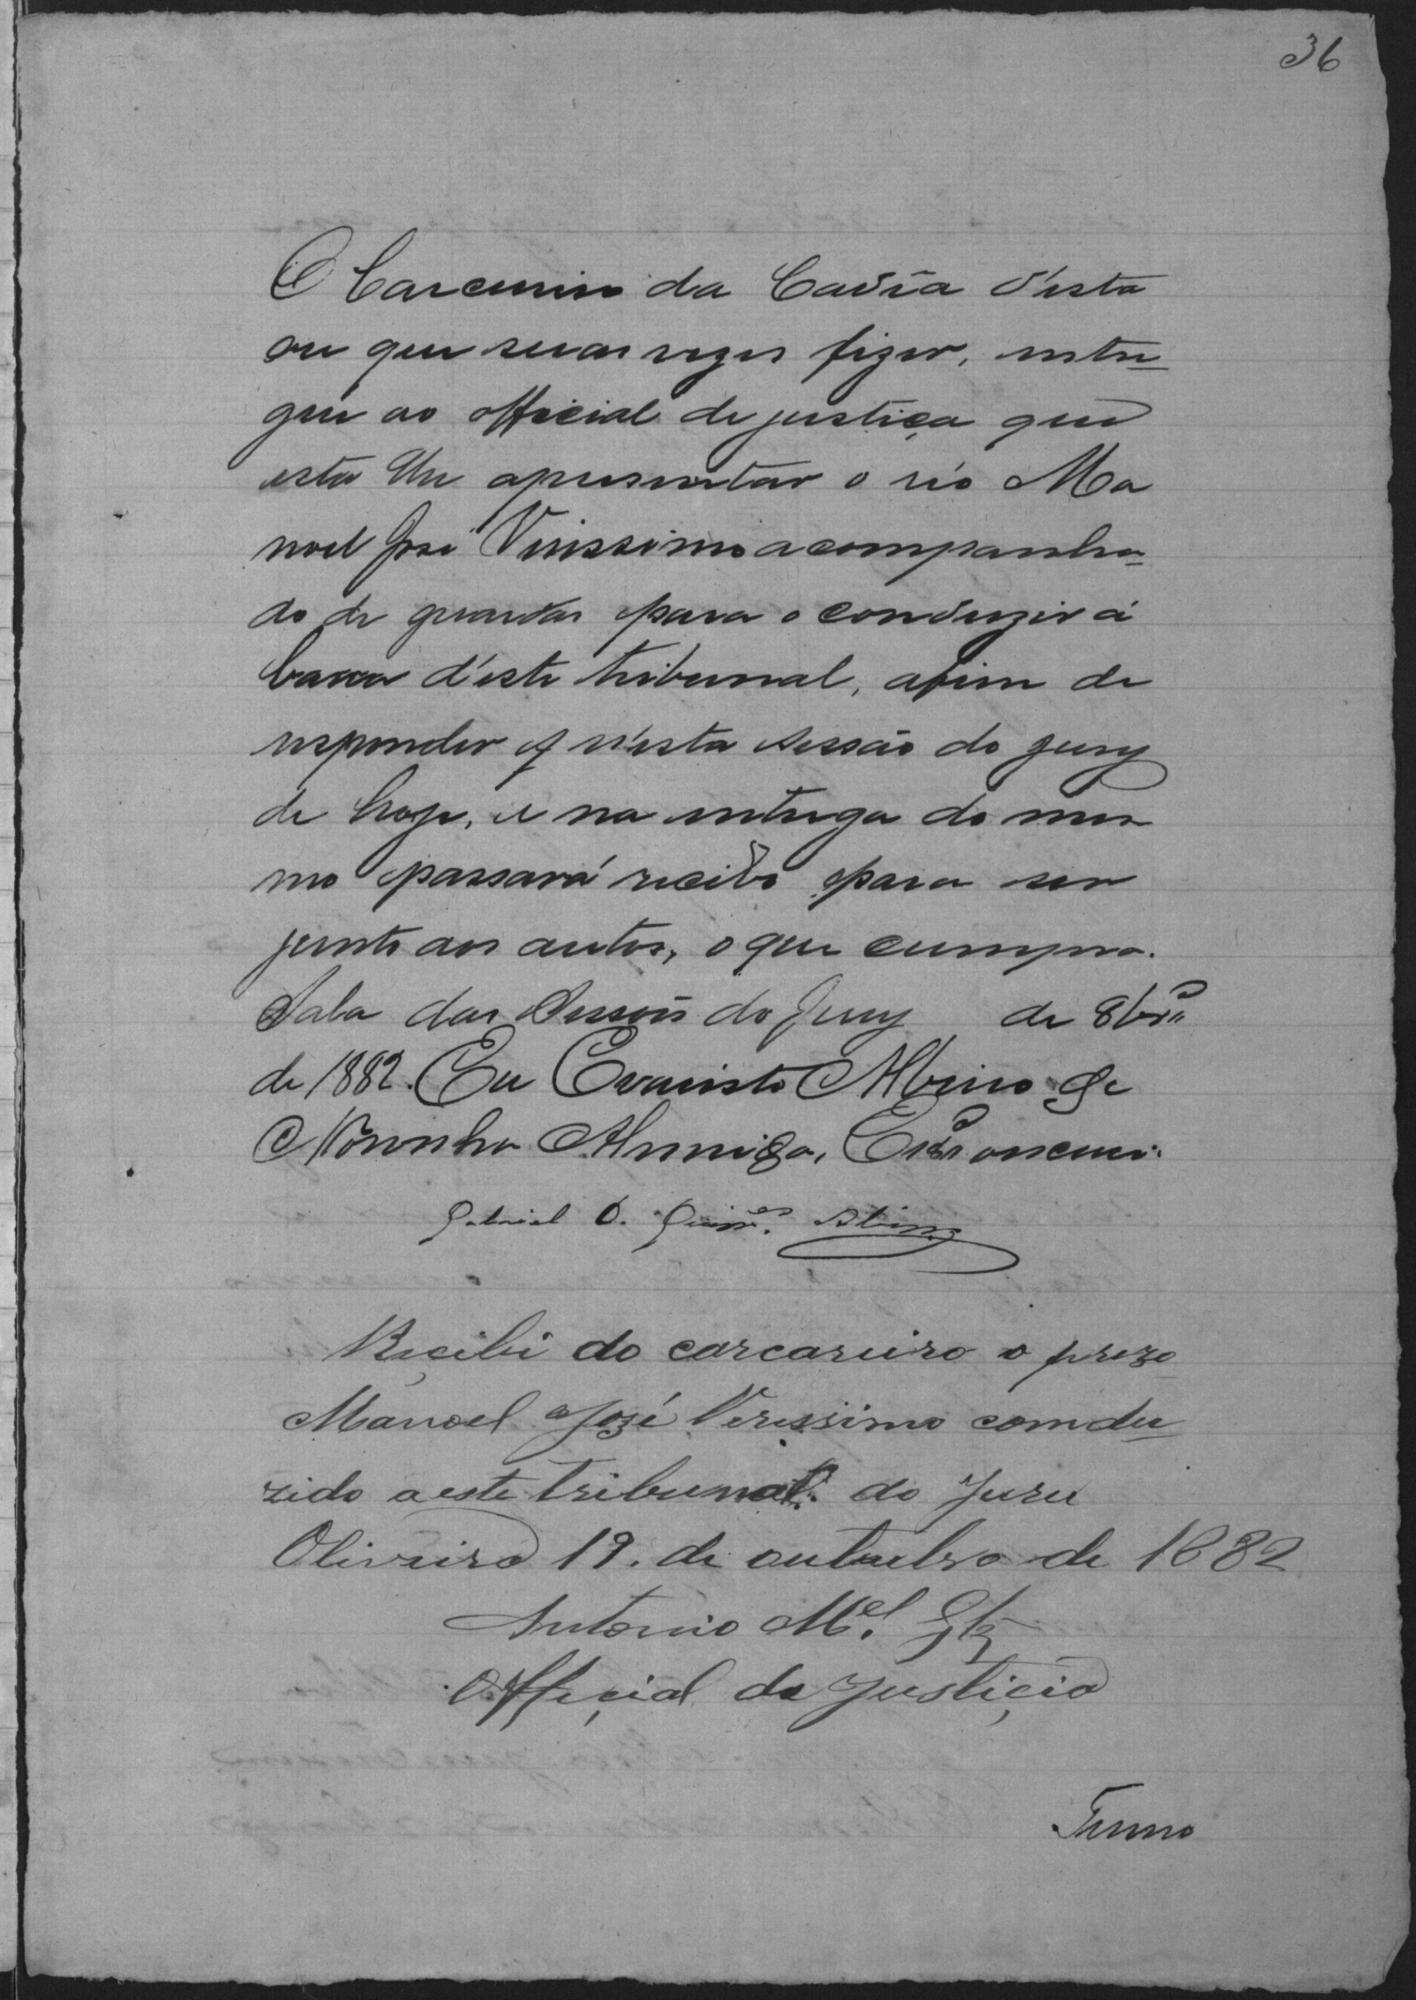 36
O Carcereiro da Cadêa d'esta
ou quem suas vezes fizer, entre-
gue ao official de justiça que
esta lhe apresentar o réo Ma
noel José Virissimo acompanha-
do de guardas para o conduzir á
barra d'este tribunal, afim de
responder n'esta sessão do jury
de hoje, e na entrega do mes
mo passará recibo para ser
junto aos autos, o que cumpra.
Sala das Sessões do Jury de 8brº
de 1882. Eu Evaristo Albino de
Noronha Almeida, Escrivão
Gabriel O.
Recibi do carcareiro o prezo
Manoel José Verissimo comdu-
zido a este tribunal do Juru
Oliveira 19. de outubro de 1882
Antonio Mel.
Official de Justiçia
Termo